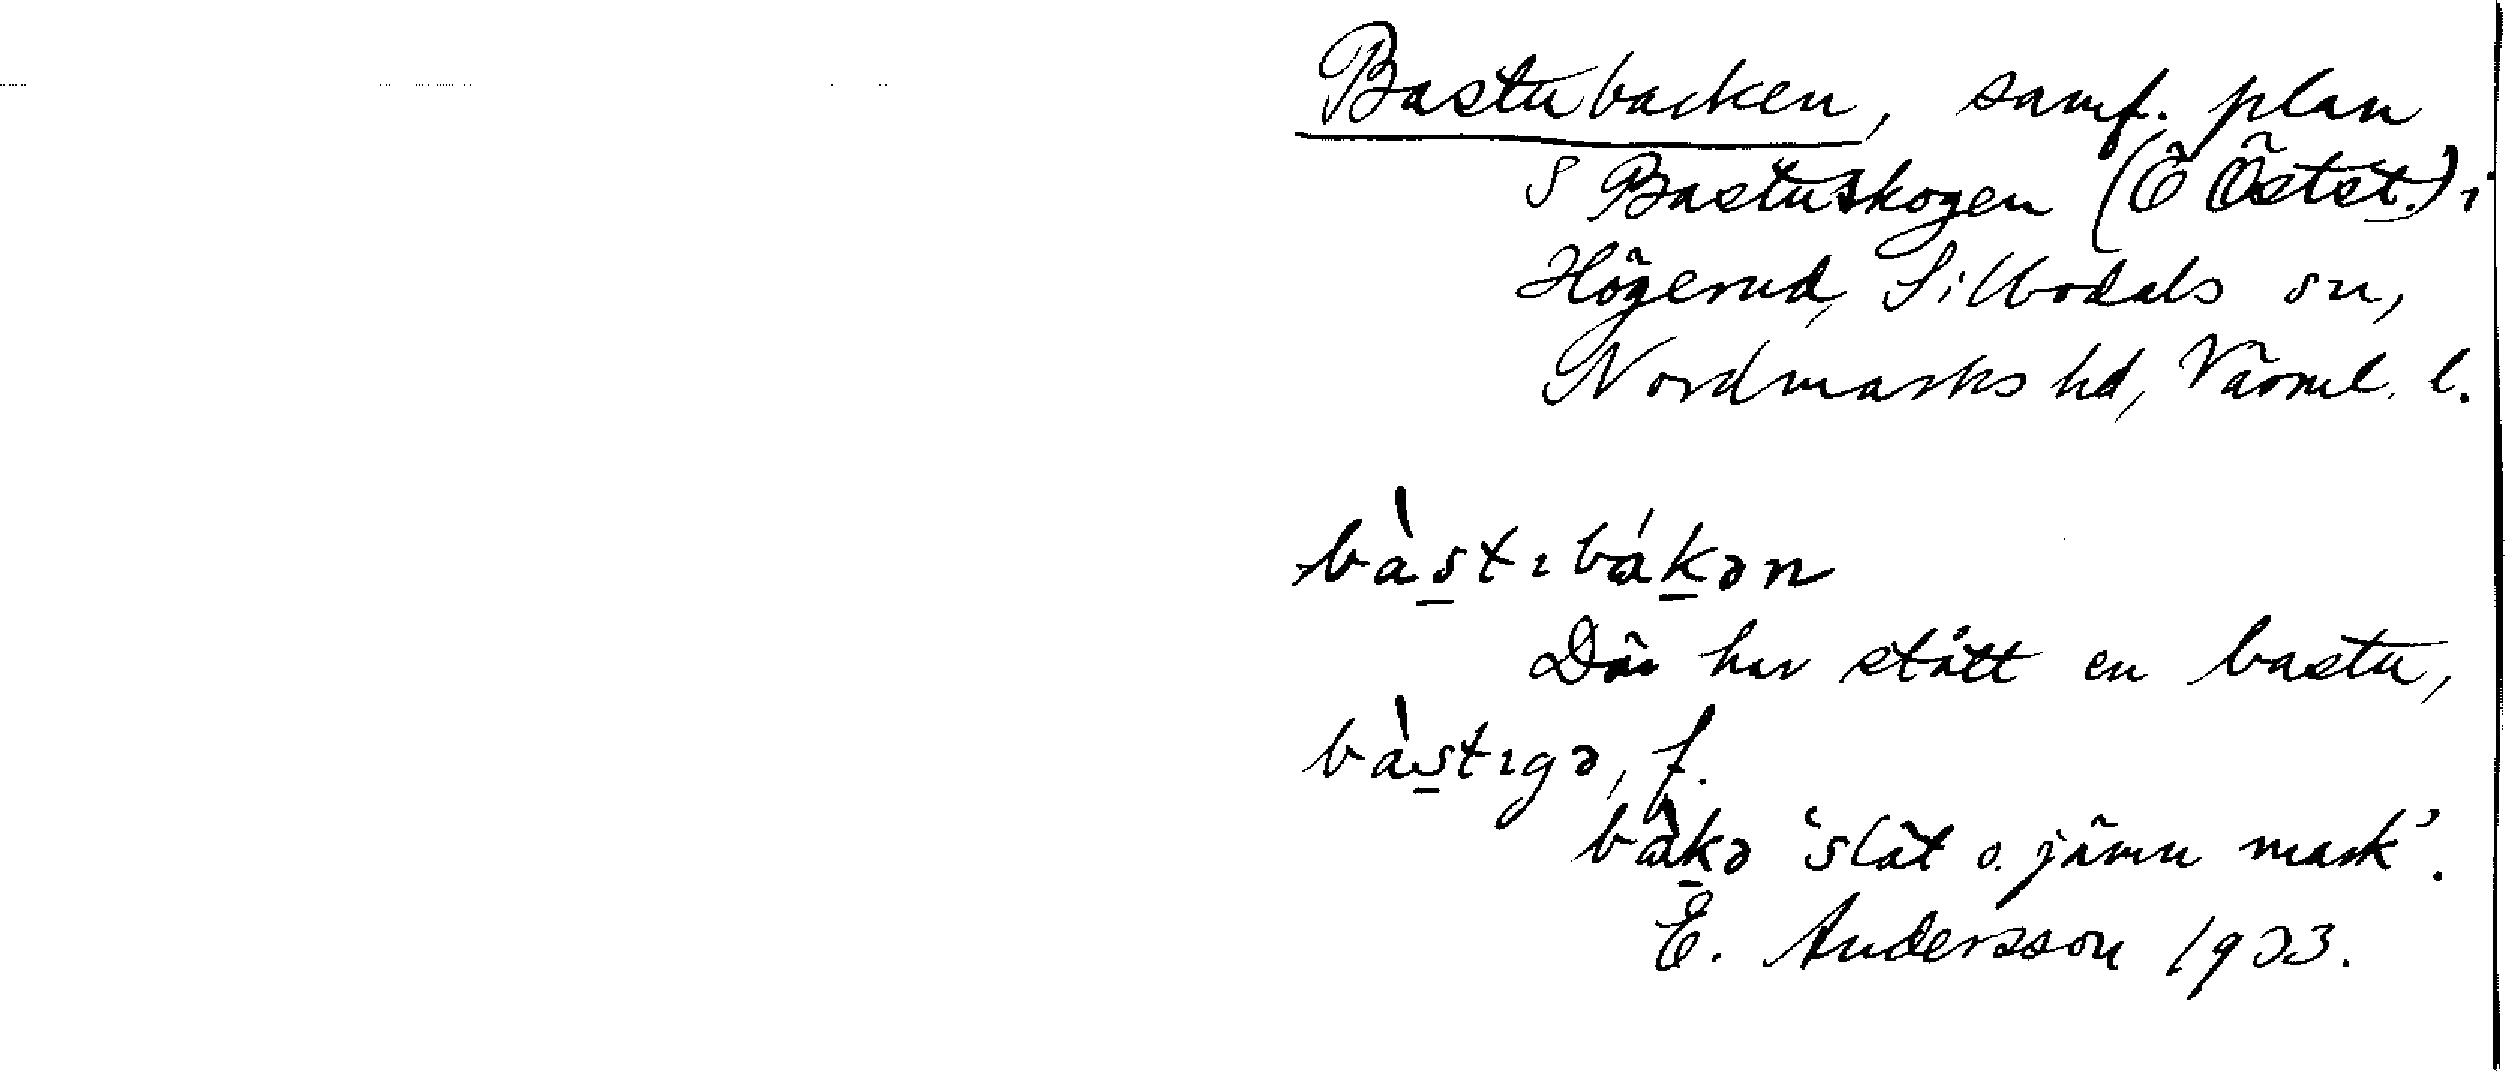 Bastubacken, samf. plan
S Bastuskogen (Ö Östst.) i
Högerud, Silbodals sn,
Nordmarks hd, Värml. l.
bàstıbákən
Där har stått en bastu,
bàstıgə, f.
bàkə 'slät o. jämn mark'.
E. Andersson 1933.